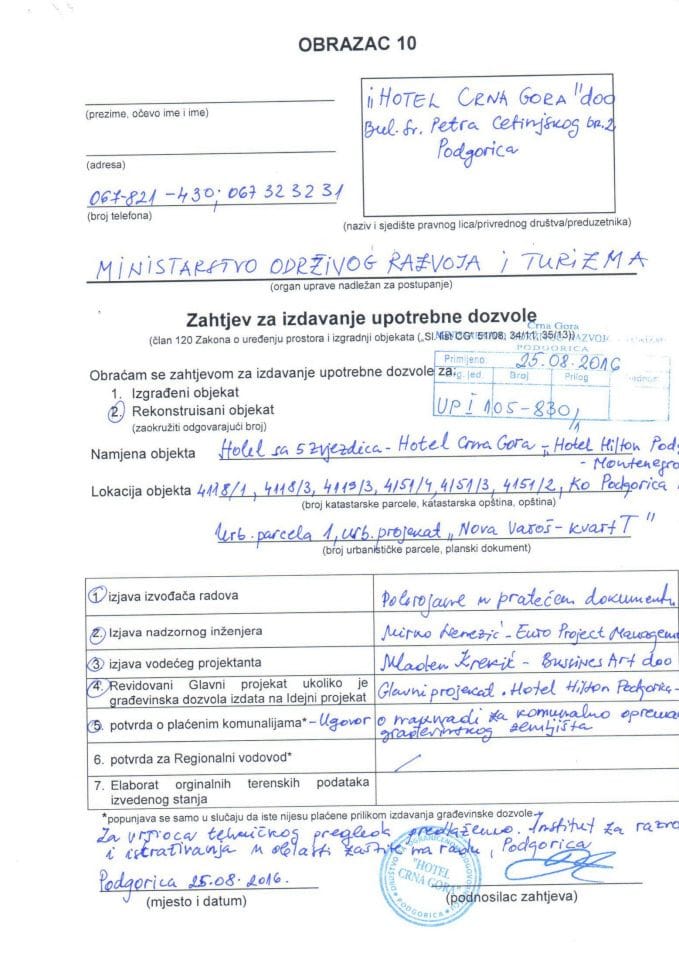 OBRAZAC 10
„HOTEL CRNA GORA" doo
Bul. Sv. Petra Cetinjskog br. 2
Podgorica
(prezime, očevo ime i ime)
(adresa)
067-821-430; 067 323 231
(broj telefona)
(naziv i sjedište pravnog lica/privrednog društva/preduzetnika)
MINISTARSTVO ODRŽIVOG RAZVOJA I TURIZMA
(organ uprave nadležan za postupanje)
Zahtjev za izdavanje upotrebne dozvole
(član 120 Zakona o uređenju prostora i izgradnji objekata („Sl. list CG" 51/08, 34/11, 35/13))
Crna Gora
PODGORICA
Primljeno: 25.08.2016
Org. jed. Broj Prilog
UPI 105-830/1
Obraćam se zahtjevom za izdavanje upotrebne dozvole za:
1. Izgrađeni objekat
2. Rekonstruisani objekat
(zaokružiti odgovarajući broj)
Namjena objekta Hotel sa 5 zvjezdica - Hotel Crna Gora „Hotel Hilton Pod
- Montenegro
Lokacija objekta 4118/1, 4118/3, 4119/3, 4151/4, 4151/3, 4151/2, Ko Podgorica
(broj katastarske parcele, katastarska opština, opština)
Urb. parcela 1, urb. projekat „Nova Varoš - kvart T"
(broj urbanističke parcele, planski dokument)
1. izjava izvođača radova
pratećem dokumentu
2. Izjava nadzornog inženjera
Mirko Nenezić - Euro Project Managem
3. izjava vodećeg projektanta
Mladen Krekić - Bussines Art doo
4. Revidovani Glavni projekat ukoliko je građevinska dozvola izdata na Idejni projekat
Glavni projekat „Hotel Hilton Podgorica -
5. potvrda o plaćenim komunalijama* - Ugovor o naknadi za komunalno oprema
građevinskog zemljišta
6. potvrda za Regionalni vodovod*
7. Elaborat orginalnih terenskih podataka izvedenog stanja
*popunjava se samo u slučaju da iste nijesu plaćene prilikom izdavanja građevinske dozvole
Za vršioca tehničkog pregleda predlažemo. Institut za razvo
i istraživanja u oblasti zaštite na radu, Podgorica
Podgorica 25.08.2016.
(mjesto i datum)
"HOTEL CRNA GORA"
PODGORICA
(podnosilac zahtjeva)